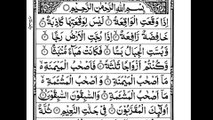 بِسْمِ اللّٰهِ الرَّحْمٰنِ الرَّحِيْمِ
اِذَا وَقَعَتِ الْوَاقِعَةُ لَيْسَ لِوَقْعَتِهَا كَاذِبَةٌ
خَافِضَةٌ رَّافِعَةٌ اِذَا رُجَّتِ الْاَرْضُ رَجًّا
وَّبُسَّتِ الْجِبَالُ بَسًّا فَكَانَتْ هَبَآءً مُّنْۢبَثًّا
وَّكُنْتُمْ اَزْوَاجًا ثَلٰثَةً فَاَصْحٰبُ الْمَيْمَنَةِ
مَآ اَصْحٰبُ الْمَيْمَنَةِ وَاَصْحٰبُ الْمَشْـَٔمَةِ
مَآ اَصْحٰبُ الْمَشْـَٔمَةِ وَالسّٰبِقُوْنَ السّٰبِقُوْنَ
اُولٰٓئِكَ الْمُقَرَّبُوْنَ فِيْ جَنّٰتِ النَّعِيْمِ ثُلَّةٌ